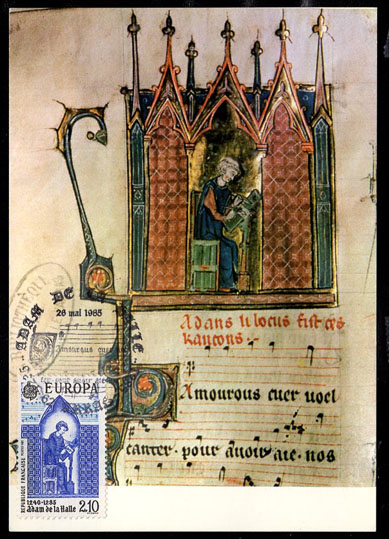 Adans li bocus fist ces
kancons.
Amourous cuer voel
canter. pour avoir aie. nos
ADAM DE LA HALLE
26 mai 1985
Amourous cuer
EUROPA
REPUBLIQUE FRANÇAISE
1240-1285
Adam de la Halle
2,10